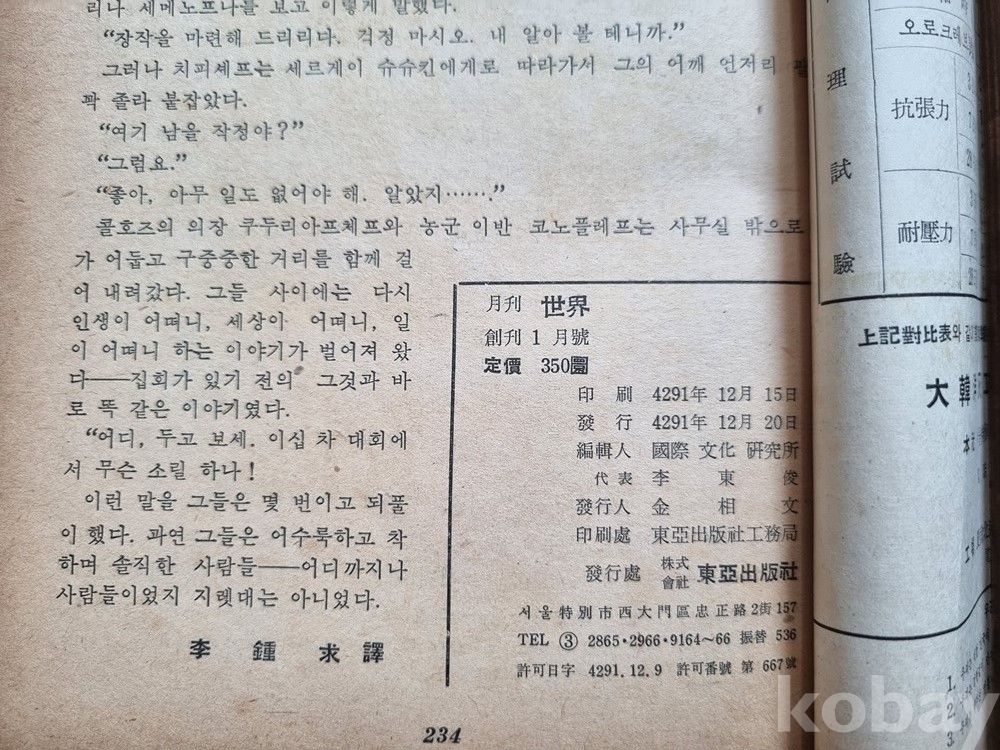 리나 세메노프나를 보고 이렇게 말했다.
“장작을 마련해 드리리다. 걱정 마시오. 내 알아 볼 테니까.”
그러나 치피셰프는 세르게이 슈슈킨에게로 따라가서 그의 어깨 언저리
꽉 졸라 붙잡았다.
“여기 남을 작정야?”
“그럼요.”
“좋아, 아무 일도 없어야 해. 알았지…….”
콜호즈의 의장 쿠두리아프체프와 농군 이반 코노플레프는 사무실 밖으로
가 어둡고 구중중한 거리를 함께 걸
어 내려갔다. 그들 사이에는 다시
인생이 어떠니, 세상이 어떠니, 일
이 어떠니 하는 이야기가 벌어져 왔
다——집회가 있기 전의 그것과 바
로 똑 같은 이야기였다.
“어디, 두고 보세. 이십 차 대회에
서 무슨 소릴 하나!
이런 말을 그들은 몇 번이고 되풀
이 했다. 과연 그들은 어수룩하고 착
하며 솔직한 사람들——어디까지나
사람들이었지 지렛대는 아니었다.
李鍾求譯
月刊 世界
創刊 1 月號
定價 350圜
印刷 4291年 12月 15日
發行 4291年 12月 20日
編輯人 國際 文化 硏究所
代表 李東俊
發行人 金相文
印刷處 東亞出版社工務局
發行處 株式會社 東亞出版社
서울特別市西大門區忠正路2街157
TEL ③ 2865·2966·9164~66 振替 536
許可日字 4291.12.9 許可番號 第 667號
234
오로크레
理試驗
抗張力
耐壓力
上記對比表와
大韓
本
1.
2.
3
kobay